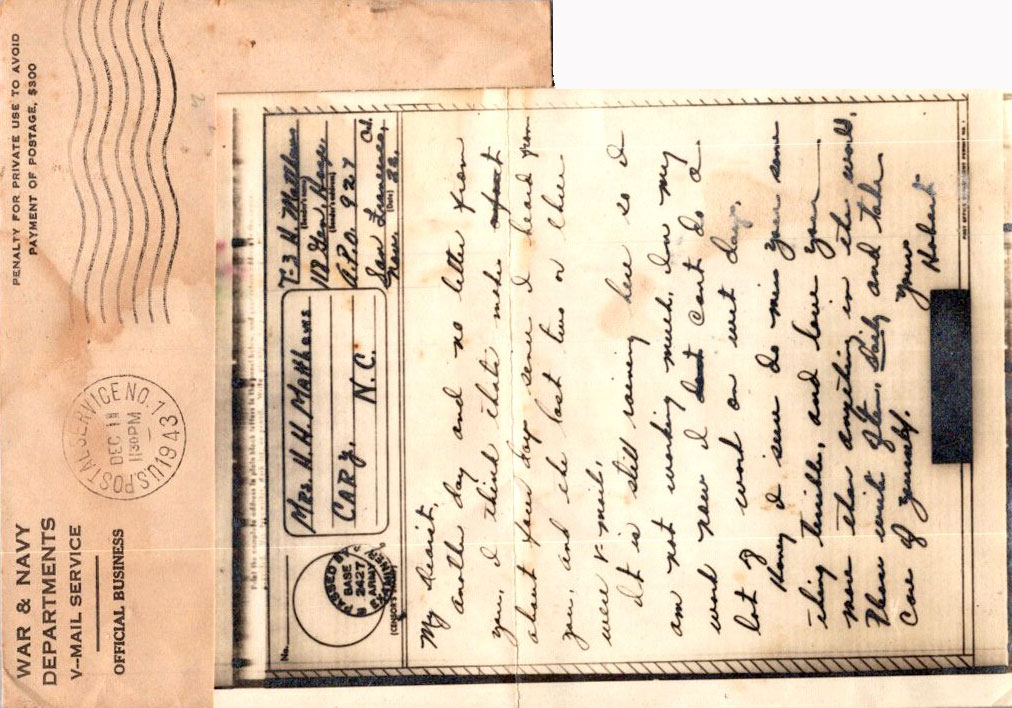 WAR & NAVY
DEPARTMENTS
V-MAIL SERVICE
OFFICIAL BUSINESS
U.S. POSTAL SERVICE NO. 13
DEC 11
1130PM
1943
PENALTY FOR PRIVATE USE TO AVOID
PAYMENT OF POSTAGE, $300
No.
PASSED BY
BASE
2427
ARMY
EXAMINER
(CENSOR'S STAMP)
Mrs. H. H. Matthews
Cary,
N.C.
T-3 H. H. Matthews
(Sender's name)
118 Gen. Hosp.
(Sender's address)
A.P.O. 927
San Francisco, Cal.
Nov. 28,
(Date)
My dearest,
Another day and no letter from
you, I think that makes
about four days since I heard from
you, and the last two or three
were V mails.
It is still raining here so I
am not working much. In my
work now I cant do a
lot of work on wet days.
Honey I sure do miss you some
thing terrible, and love you
more than anything in the world.
Please write often, Daily and take
care of yourself.
Yours
Hobart